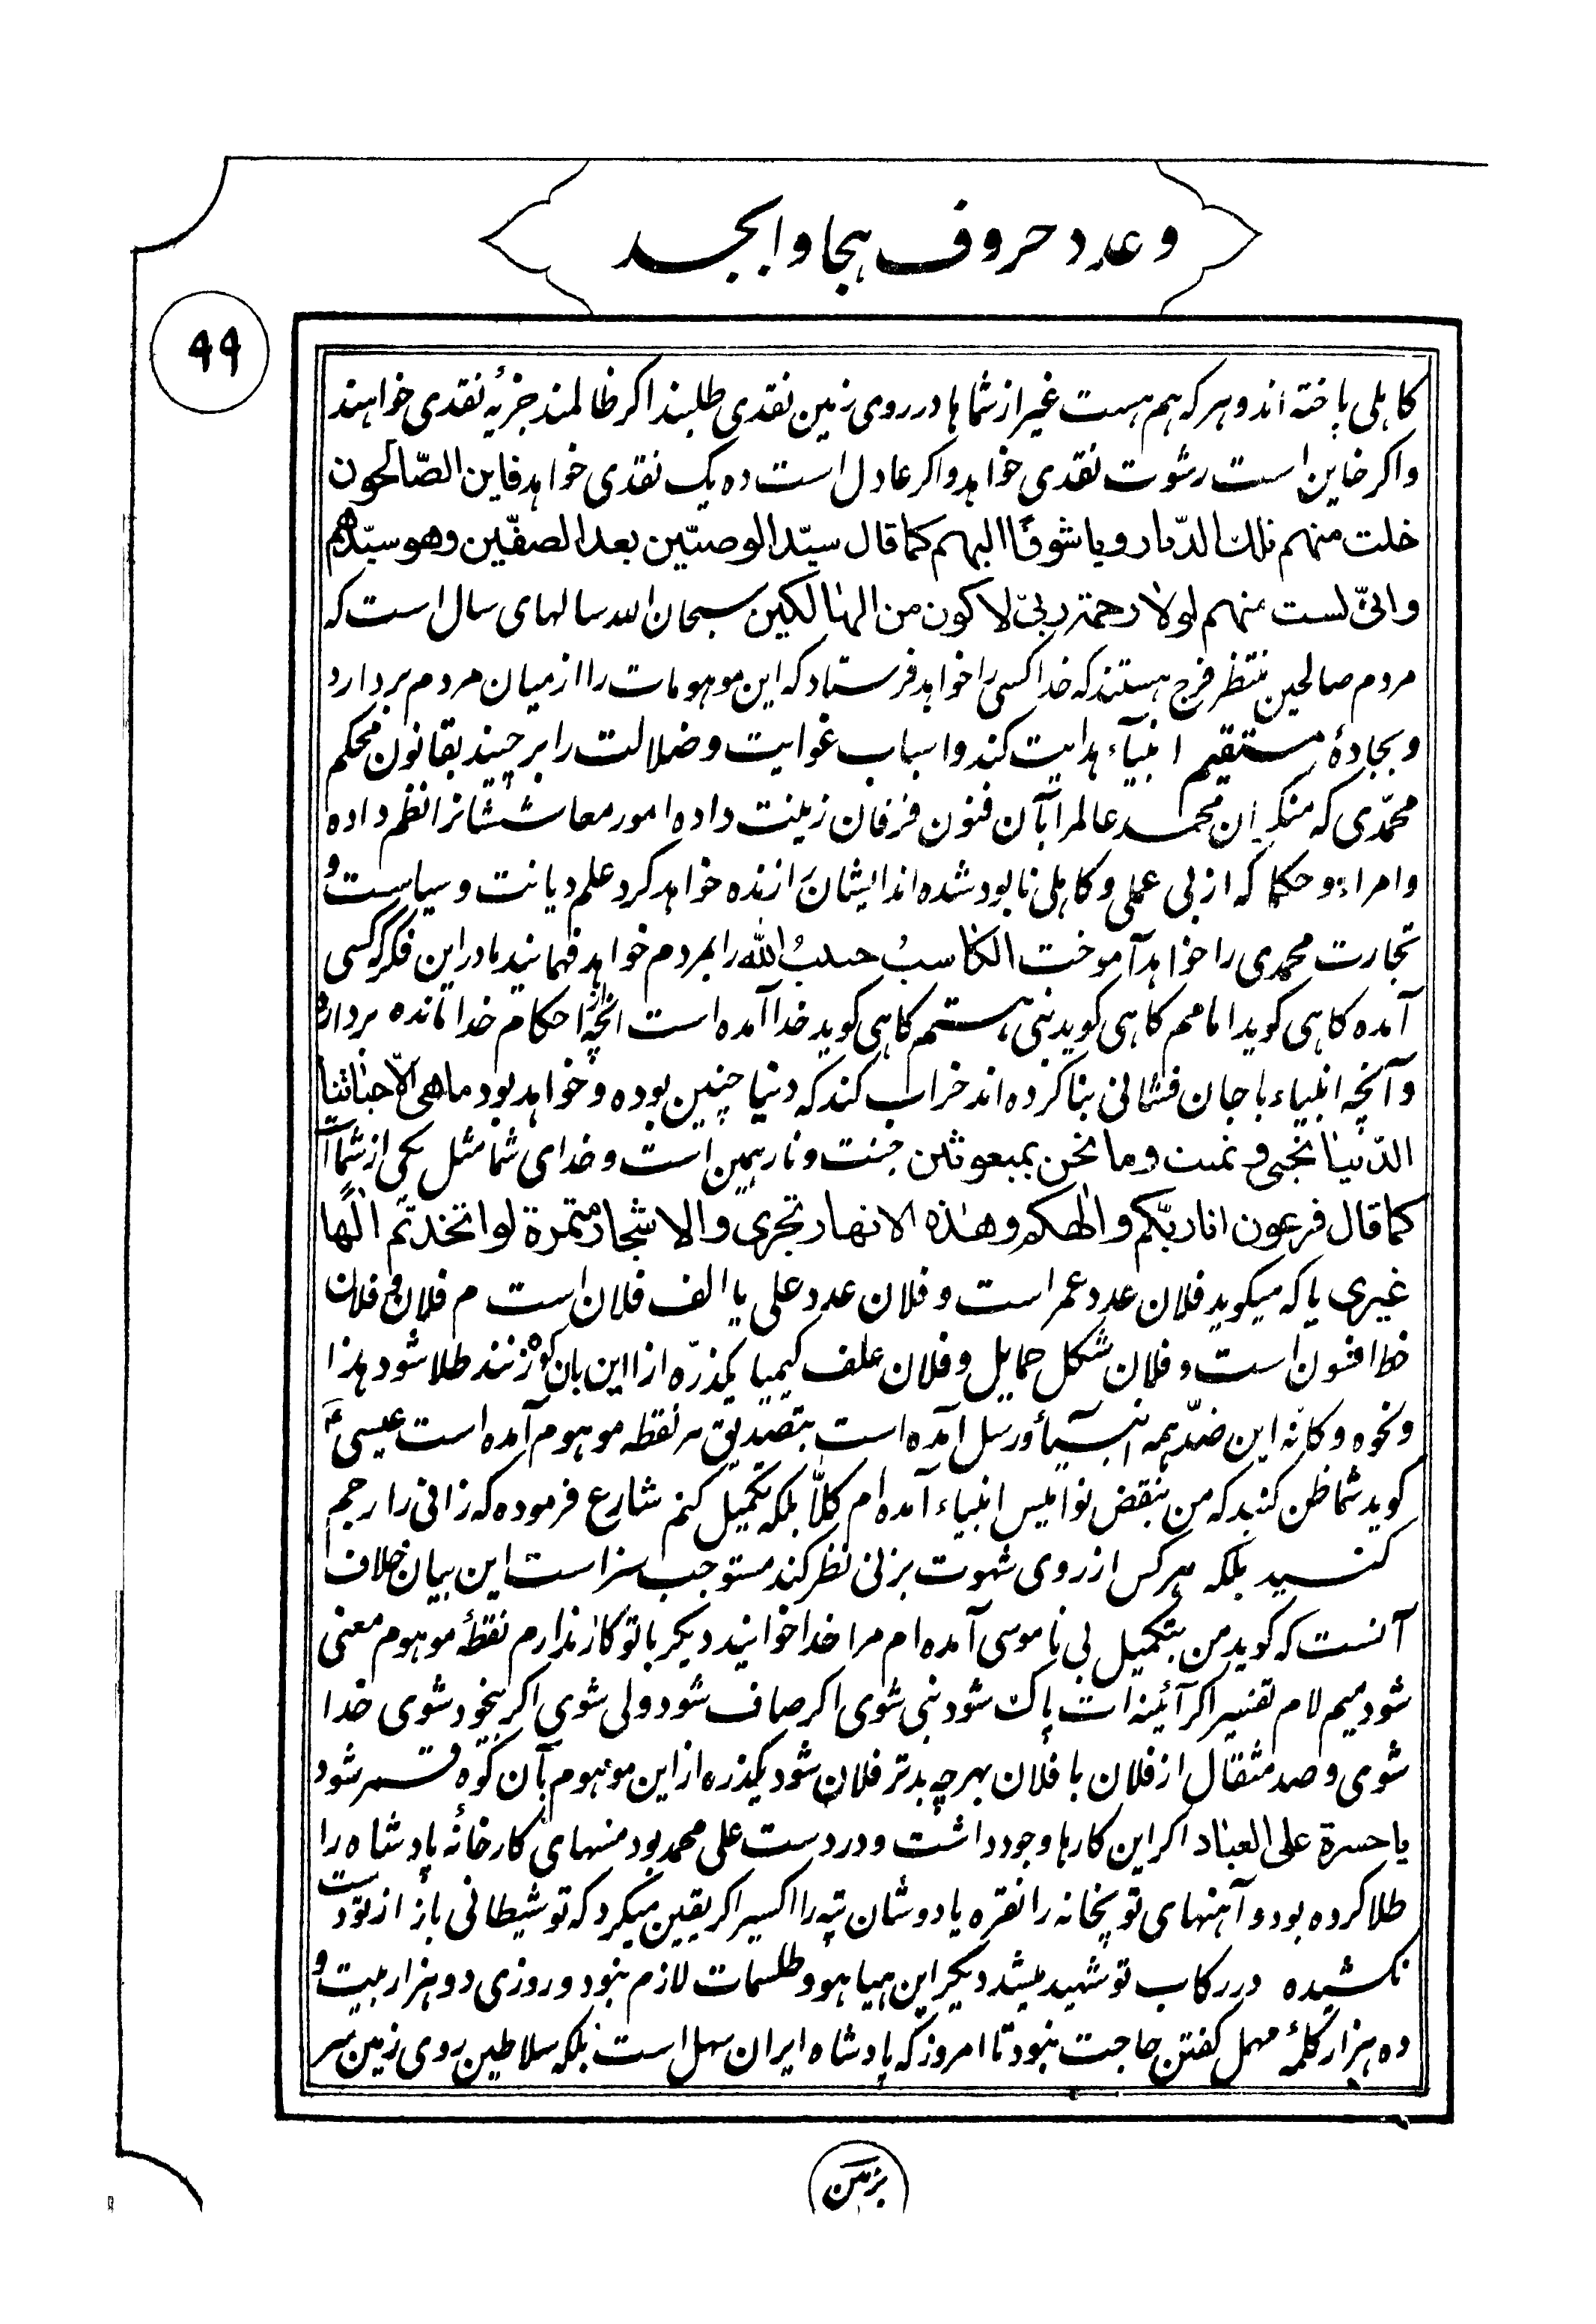 وعدد حروف هجا وابجد
۹۹
کاهلی باخته اند و هرکه هم هست غیر از شماها در روی زمین نقدی طلبند اکر ظالمند جزیهٔ نقدی خواهند
واکر خاین است رشوت نقدی خواهد واکر عادل است ده یک نقدی خواهد فاین الصّالحون
خلت منهم تلك الدّیار ویا شوقًا الیهم کما قال سیّد الوصیّین بعد الصفّین وهو سیّدهم
وانّی لست منهم لولا رحمة ربّی لاکون من الهالکین سبحان الله سالهای سال است که
مردم صالحین منتظر فرج هستند که خدا کسی را خواهد فرستاد که این موهومات را از میان مردم بردارد
و بجادهٔ مستقیم انبیآء هدایت کند و اسباب غوایت و ضلالت را برچیند بقانون محکم
محمّدی که منکران محمد عالم را بآن فنون فرقان زینت داده امور معاششانرا نظم داده
وامراء و حکما که از بی عملی و کاهلی نابود شده اند ایشان را زنده خواهد کرد علم دیانت و سیاست و
تجارت محمدی را خواهد آموخت الکاسبُ حبیبُ الله را بمردم خواهد فهمانید ما در این فکر که کسی
آمده کاهی کوید امامم کاهی کوید نبی هستم کاهی کوید خدا آمده است انچه از احکام خدا مانده بردارد
و آنچه انبیاء با جان فشانی بنا کرده اند خراب کند که دنیا چنین بوده و خواهد بود ما هی الّا حیاتنا
الدّنیا نحیی و نمیت وما نحن بمبعوثین جنت و نار همین است و خدای شما مثل یکی از شما است
کما قال فرعون انا ربّکم و الٰهکم وهٰذه الانهار تجری والاشجار مثمرة لو اتخذتم الٰهًا
غیری یا که میکوید فلان عدد عمر است و فلان عدد علی یا الف فلان است م فلان و فلان
خط افسون است و فلان شکل حمایل و فلان علف کیمیا یکذرّه از این بان کوه زنند طلا شود هذا
و نحوه و کانّه این ضدّ همه انبیآء و رسل آمده است بتصدیق هر نقطه موهوم آمده است عیسی ع
کوید شما ظن کنید که من بنقض نوامیس انبیاء آمده ام کلّا بلکه تکمیل کنم شارع فرموده که زانی را رجم
کنید بلکه هر کس از روی شهوت بزنی نظر کند مستوجب سزاست این بیان خلاف
آنست که کوید من بتکمیل بی ناموسی آمده ام مرا خدا خوانید دیکر با تو کار ندارم نقطهٔ موهوم معنی
شود میم لام تفسیر اکر آئینه ات پاک شود نبی شوی اکر صاف شود ولی شوی اکر بیخود شوی خدا
شوی و صد مثقال از فلان با فلان بهرچه بدتر فلان شود یکذره از این موهوم بآن کوه قمر شود
یا حسرة علی العباد اکر این کارها وجود داشت و در دست علی محمد بود منهای کارخانهٔ پادشاه را
طلا کرده بود و آهنهای توپخانه را نقره یا دوشان تپه را اکسیر اکر یقین میکرد که تو شیطانی باز از تو دست
نکشیده در رکاب تو شهید میشد دیکر این هیاهو و طلسمات لازم نبود و روزی دو هزار بیت و
ده هزار کلمهٔ مهمل کفتن حاجت نبود تا امروز که پادشاه ایران سهل است بلکه سلاطین روی زمین سر
بزمین